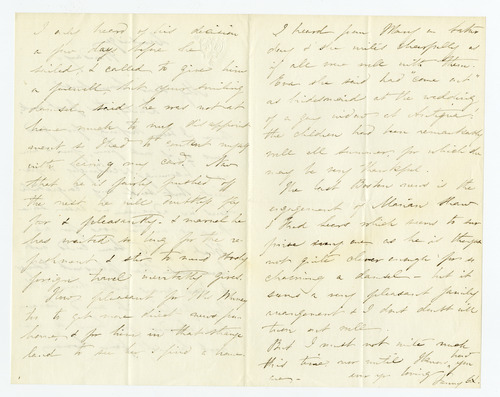 I only heard of his decision
a few days before he
sailed. I called to give him
a farewell, but your smiling
damsel said he was not at
home much to my disappoint
ment so I had to content myself
with leaving my card. Now
that he is fairly pushed off
the rest he will
for & pleasantly. I
has waited so long for the re
freshment & that to mind & body
foreign travel gives.
How pleasant for the
to get more direct news from
home, & for him in that strange
land to see her & find a home
I heard from Mary on
day & she writes cheerfully as
if all were well with them.
Eva she said had "come out"
as bridesmaid at the wedding
of a at Antigua!
the children had been remarkably
well all summer, for which she
may be very thankful.
The last Boston news is the
engagement of Marian Shaw
I had heard which seems to sur
prise every one as he is thought
not quite clever enough for so
charming a damsel - but it
seems a very pleasant family
arrangement & I dont doubt will
turn out well.
But I must not write much
this time, nor until I know how
you are. ever yr loving
Fanny